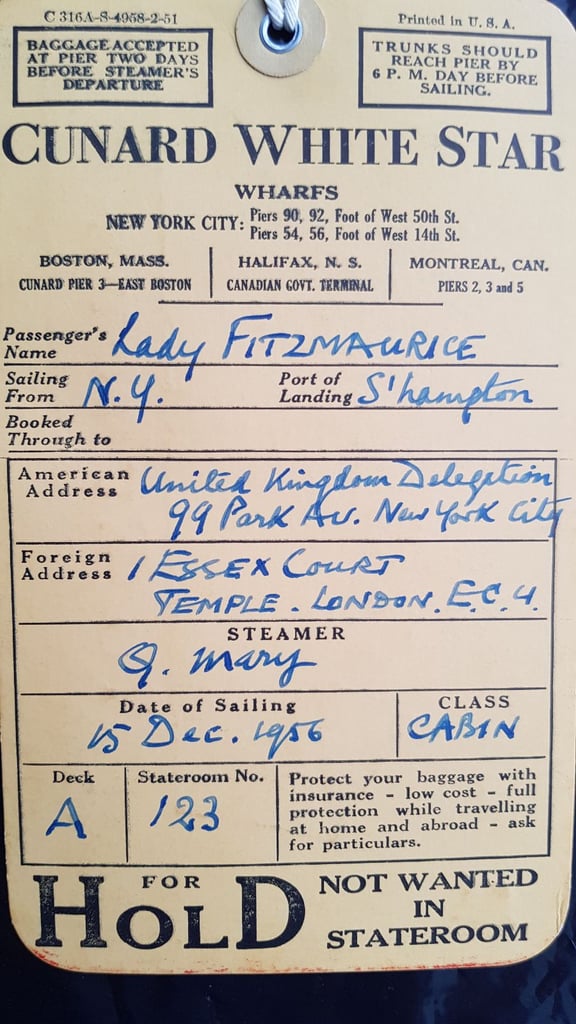 C 316A-S-4958-2-51
Printed in U. S. A.
BAGGAGE ACCEPTED
AT PIER TWO DAYS
BEFORE STEAMER'S
DEPARTURE
TRUNKS SHOULD
REACH PIER BY
6 P. M. DAY BEFORE
SAILING.
CUNARD WHITE STAR
WHARFS
NEW YORK CITY: Piers 90, 92, Foot of West 50th St.
Piers 54, 56, Foot of West 14th St.
BOSTON, MASS.
CUNARD PIER 3—EAST BOSTON
HALIFAX, N. S.
CANADIAN GOVT. TERMINAL
MONTREAL, CAN.
PIERS 2, 3 and 5
Passenger's Name Lady FITZMAURICE
Sailing From N.Y. Port of Landing S'hampton
Booked Through to
American Address United Kingdom Delegation
99 Park Av. New York City
Foreign Address 1 ESSEX COURT
TEMPLE. LONDON. E.C.4.
STEAMER
Q. Mary
Date of Sailing
15 Dec. 1956
CLASS
CABIN
Deck
A
Stateroom No.
123
Protect your baggage with
insurance - low cost - full
protection while travelling
at home and abroad - ask
for particulars.
FOR
HOLD
NOT WANTED
IN
STATEROOM